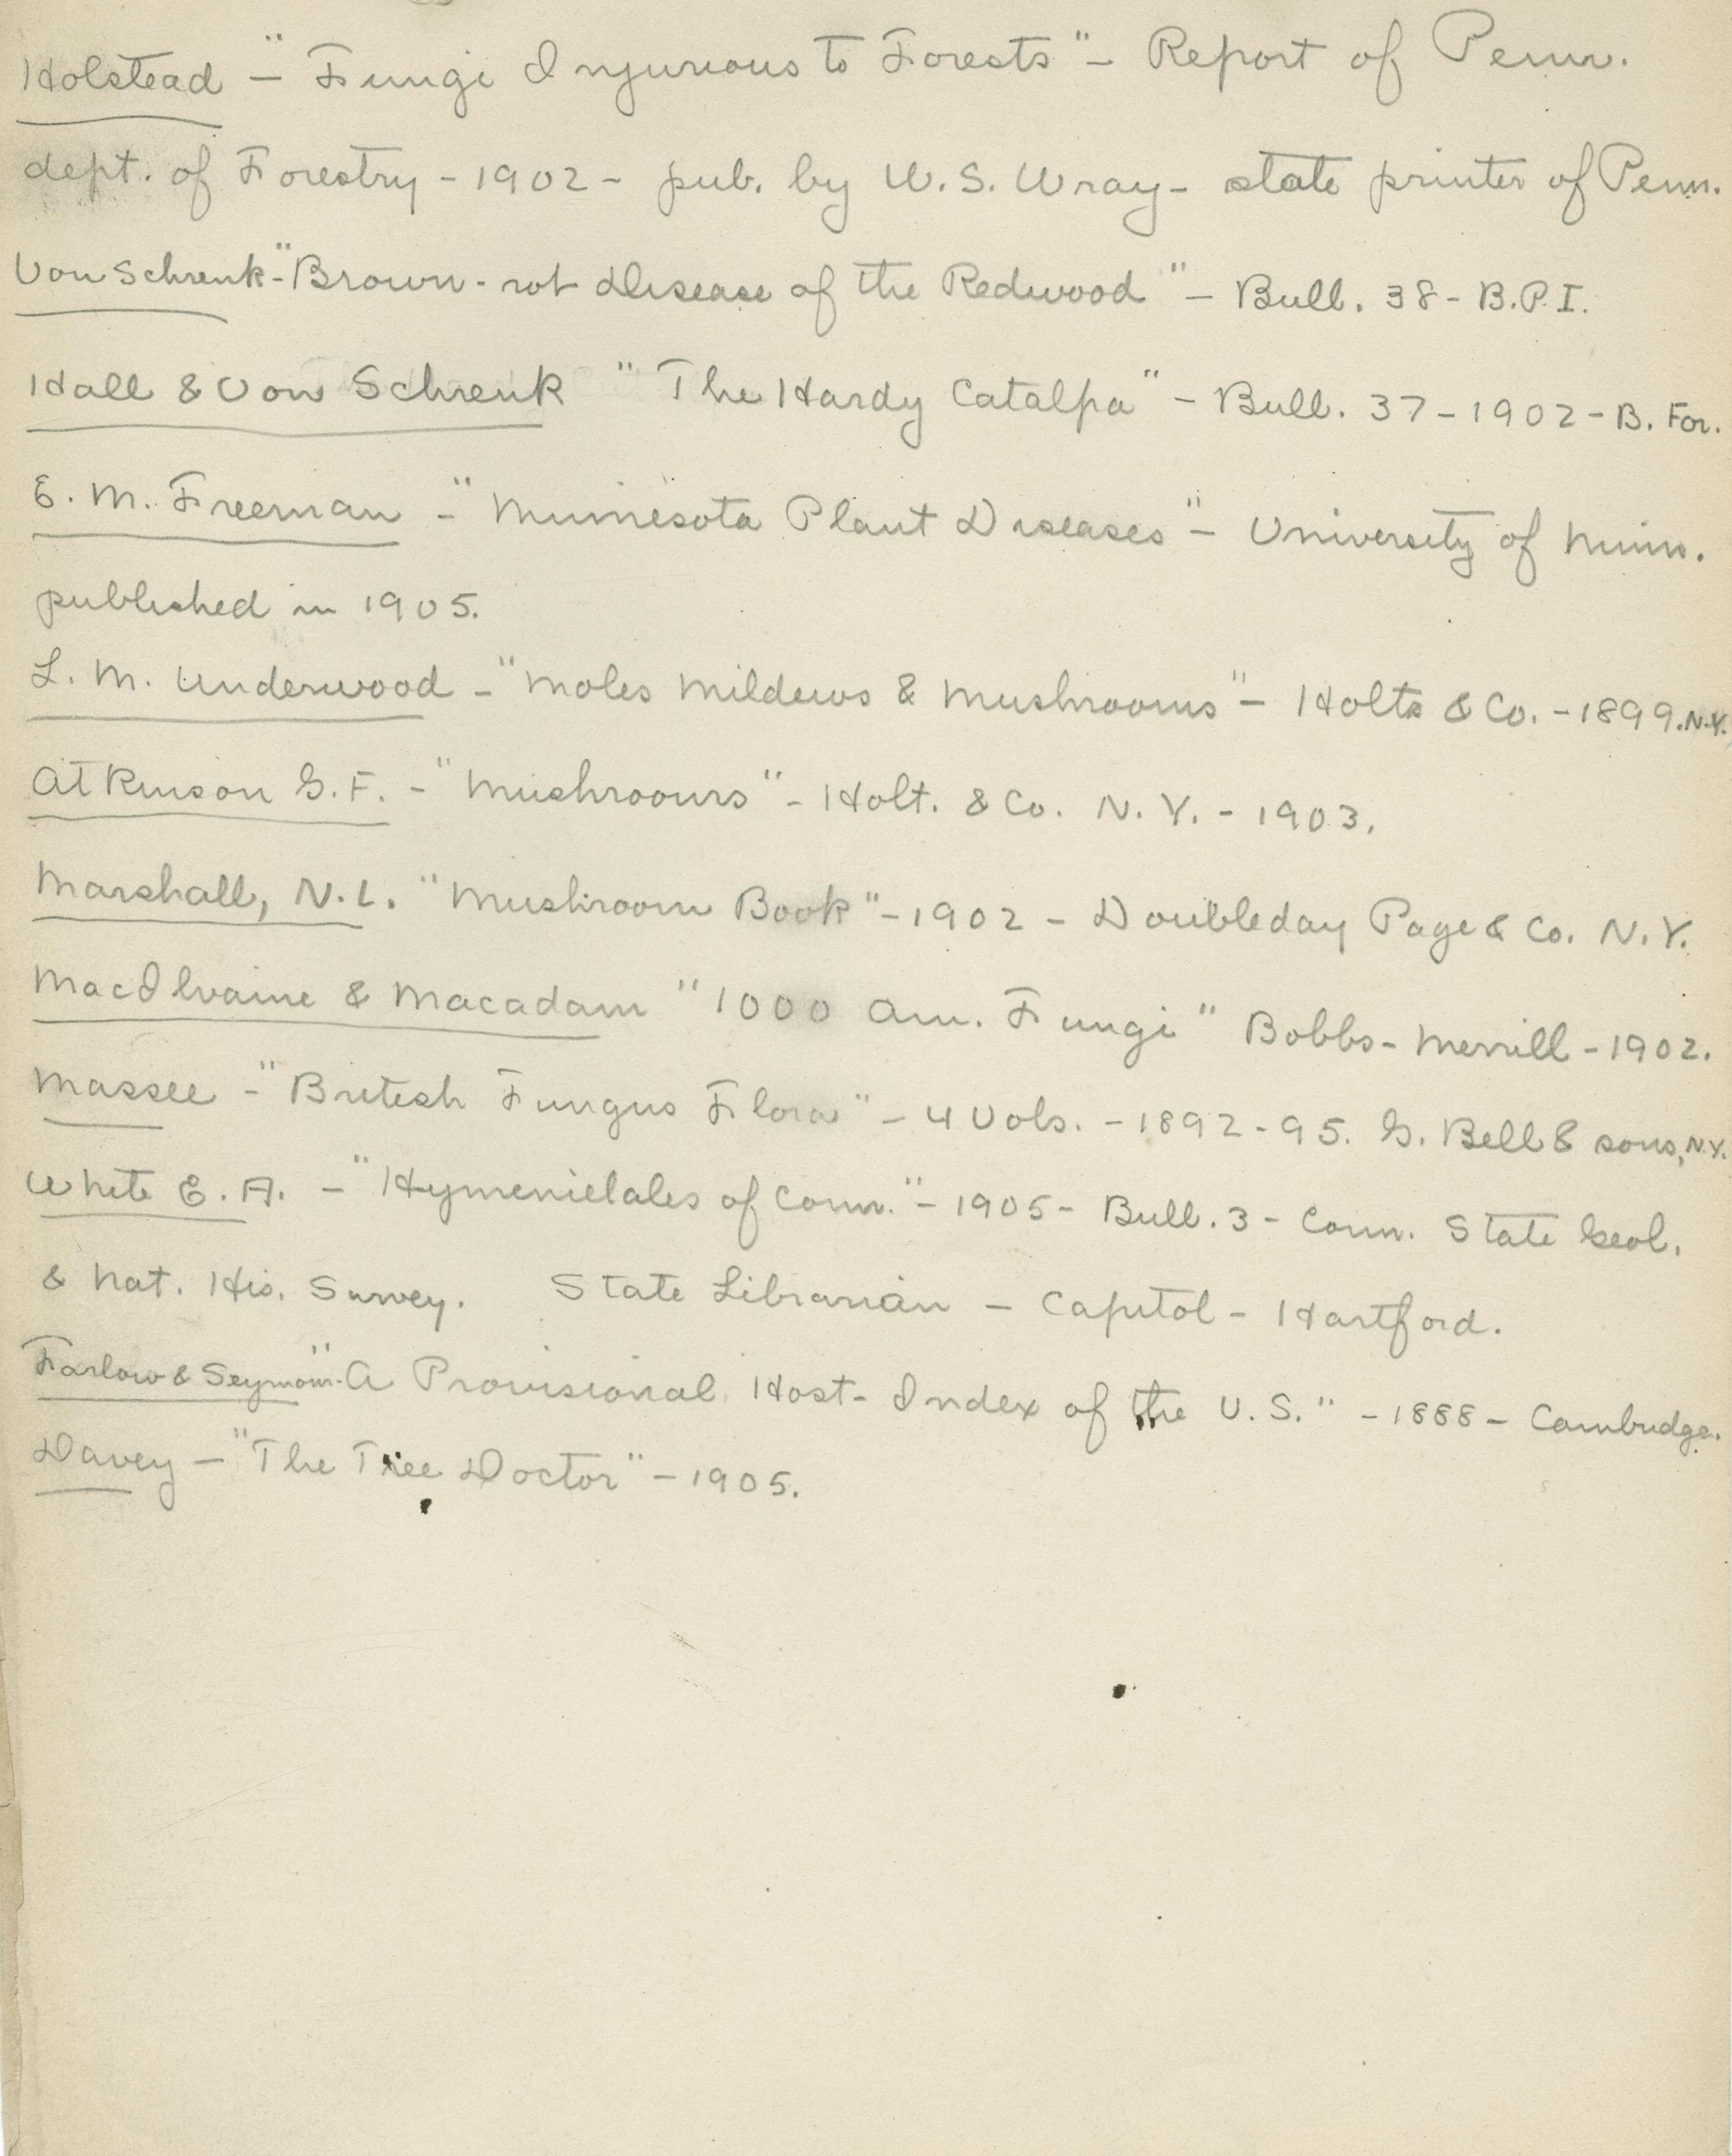 Holstead - "Fungi Injurious to Forests" - Report of Penn.
dept. of Forestry - 1902 - pub. by W. S. Wray - state printer of Penn.
Von Schrenk - "Brown-rot Disease of the Redwood" - Bull. 38 - B.P.I.
Hall & Von Schrenk "The Hardy Catalpa" - Bull. 37 - 1902 - B. For.
E. M. Freeman - "Minnesota Plant Diseases" - University of Minn.
published in 1905.
L. M. Underwood - "Moles Mildews & Mushrooms" - Holts & Co. - 1899. N.Y.
Atkinson G. F. - "Mushrooms" - Holt. & Co. N. Y. - 1903.
Marshall, N. L. "Mushroom Book" - 1902 - Doubleday Page & Co. N. Y.
MacIlvaine & Macadam "1000 Am. Fungi" Bobbs-Merrill - 1902.
Massee - "British Fungus Flora" - 4 Vols. - 1892-95. G. Bell & sons, N.Y.
White E. A. - "Hymenielales of Conn." - 1905 - Bull. 3 - Conn. State Geol.
& Nat. His. Survey. State Librarian - Capitol - Hartford.
Farlow & Seymour - "A Provisional Host-Index of the U. S." - 1888 - Cambridge.
Davey - "The Tree Doctor" - 1905.